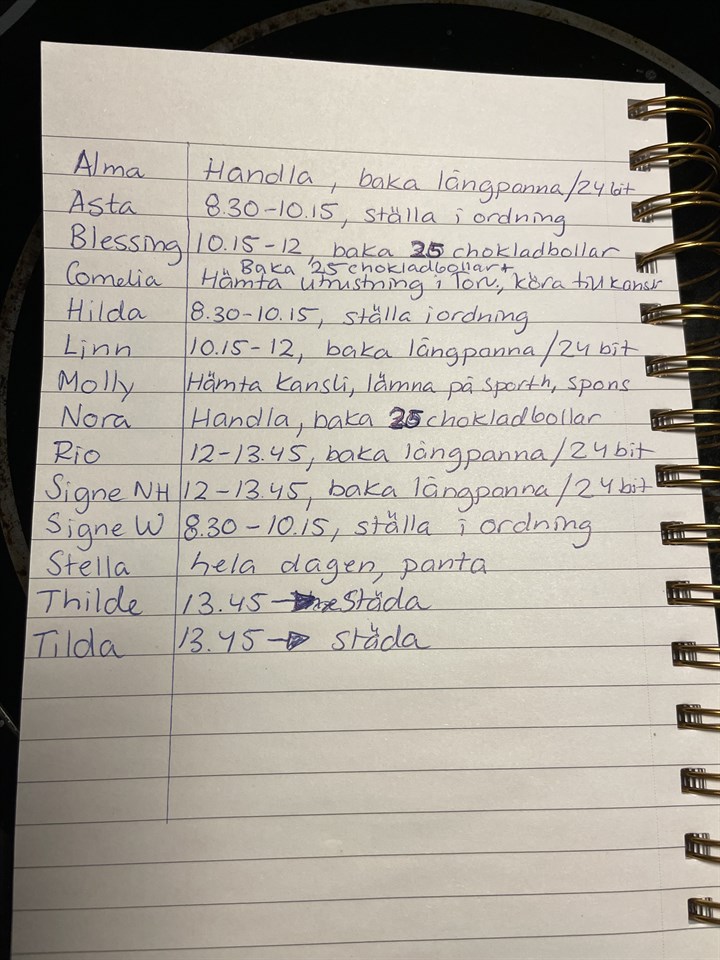 Alma Handla, baka långpanna/24 bit
Asta 8.30-10.15, ställa i ordning
Blessing 10.15-12, baka 25 chokladbollar
Baka 25 chokladbollar+
Cornelia Hämta utrustning i Torv, köra till kansli
Hilda 8.30-10.15, ställa iordning
Linn 10.15-12, baka långpanna/24 bit
Molly Hämta kansli, lämna på sporth, spons
Nora Handla, baka 25 chokladbollar
Rio 12-13.45, baka långpanna/24 bit
Signe NH 12-13.45, baka långpanna/24 bit
Signe W 8.30-10.15, ställa i ordning
Stella hela dagen, panta
Thilde 13.45 → Städa
Tilda 13.45 → städa